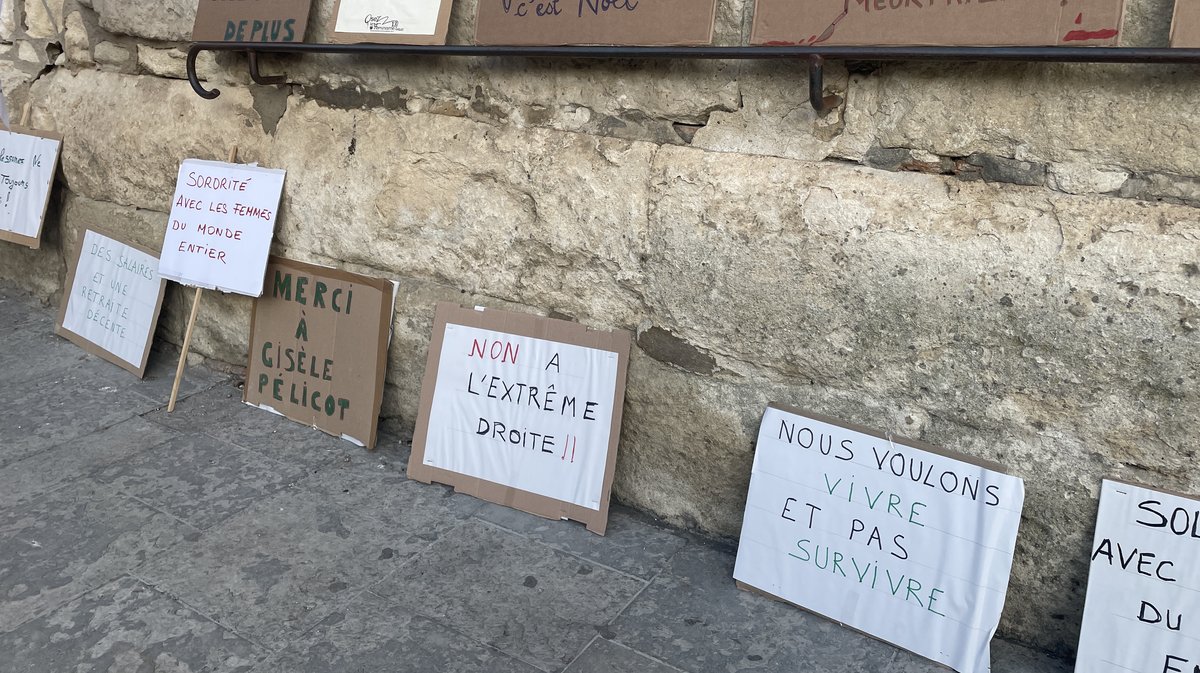 DE PLUS
c'est Noël
Toujours
!
SORORITÉ
AVEC LES FEMMES
DU MONDE
ENTIER
DES SALAIRES
ET UNE
RETRAITE
DÉCENTE
MERCI
À
GISÈLE
PÉLICOT
NON A
L'EXTRÊME
DROITE !!
NOUS VOULONS
VIVRE
ET PAS
SURVIVRE
AVEC
DU